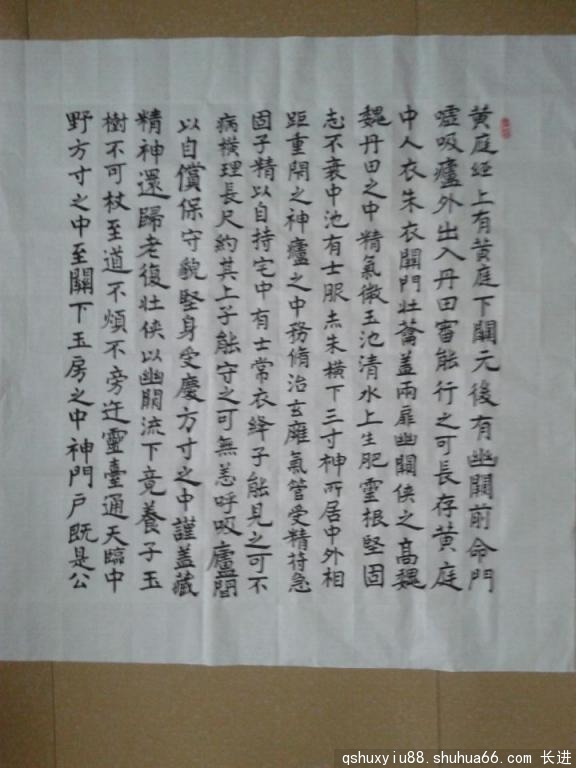 黄庭經上有黄庭下關元後有幽闕前命門
噓吸廬外出入丹田審能行之可長存黄庭
中人衣朱衣關門壮籥蓋兩扉幽闕俠之高魏
魏丹田之中精氣微玉池清水上生肥靈根堅固
志不衰中池有士服赤朱横下三寸神所居中外相
距重閉之神廬之中務脩治玄廱氣管受精符急
固子精以自持宅中有士常衣絳子能見之可不
病横理長尺約其上子能守之可無恙呼吸廬間
以自償保守貌堅身受慶方寸之中謹蓋藏
精神還歸老復壮俠以幽闕流下竟養子玉
樹不可杖至道不煩不旁迕靈臺通天臨中
野方寸之中至關下玉房之中神門戶既是公
qshuxyiu88.shuhua66.com 长进